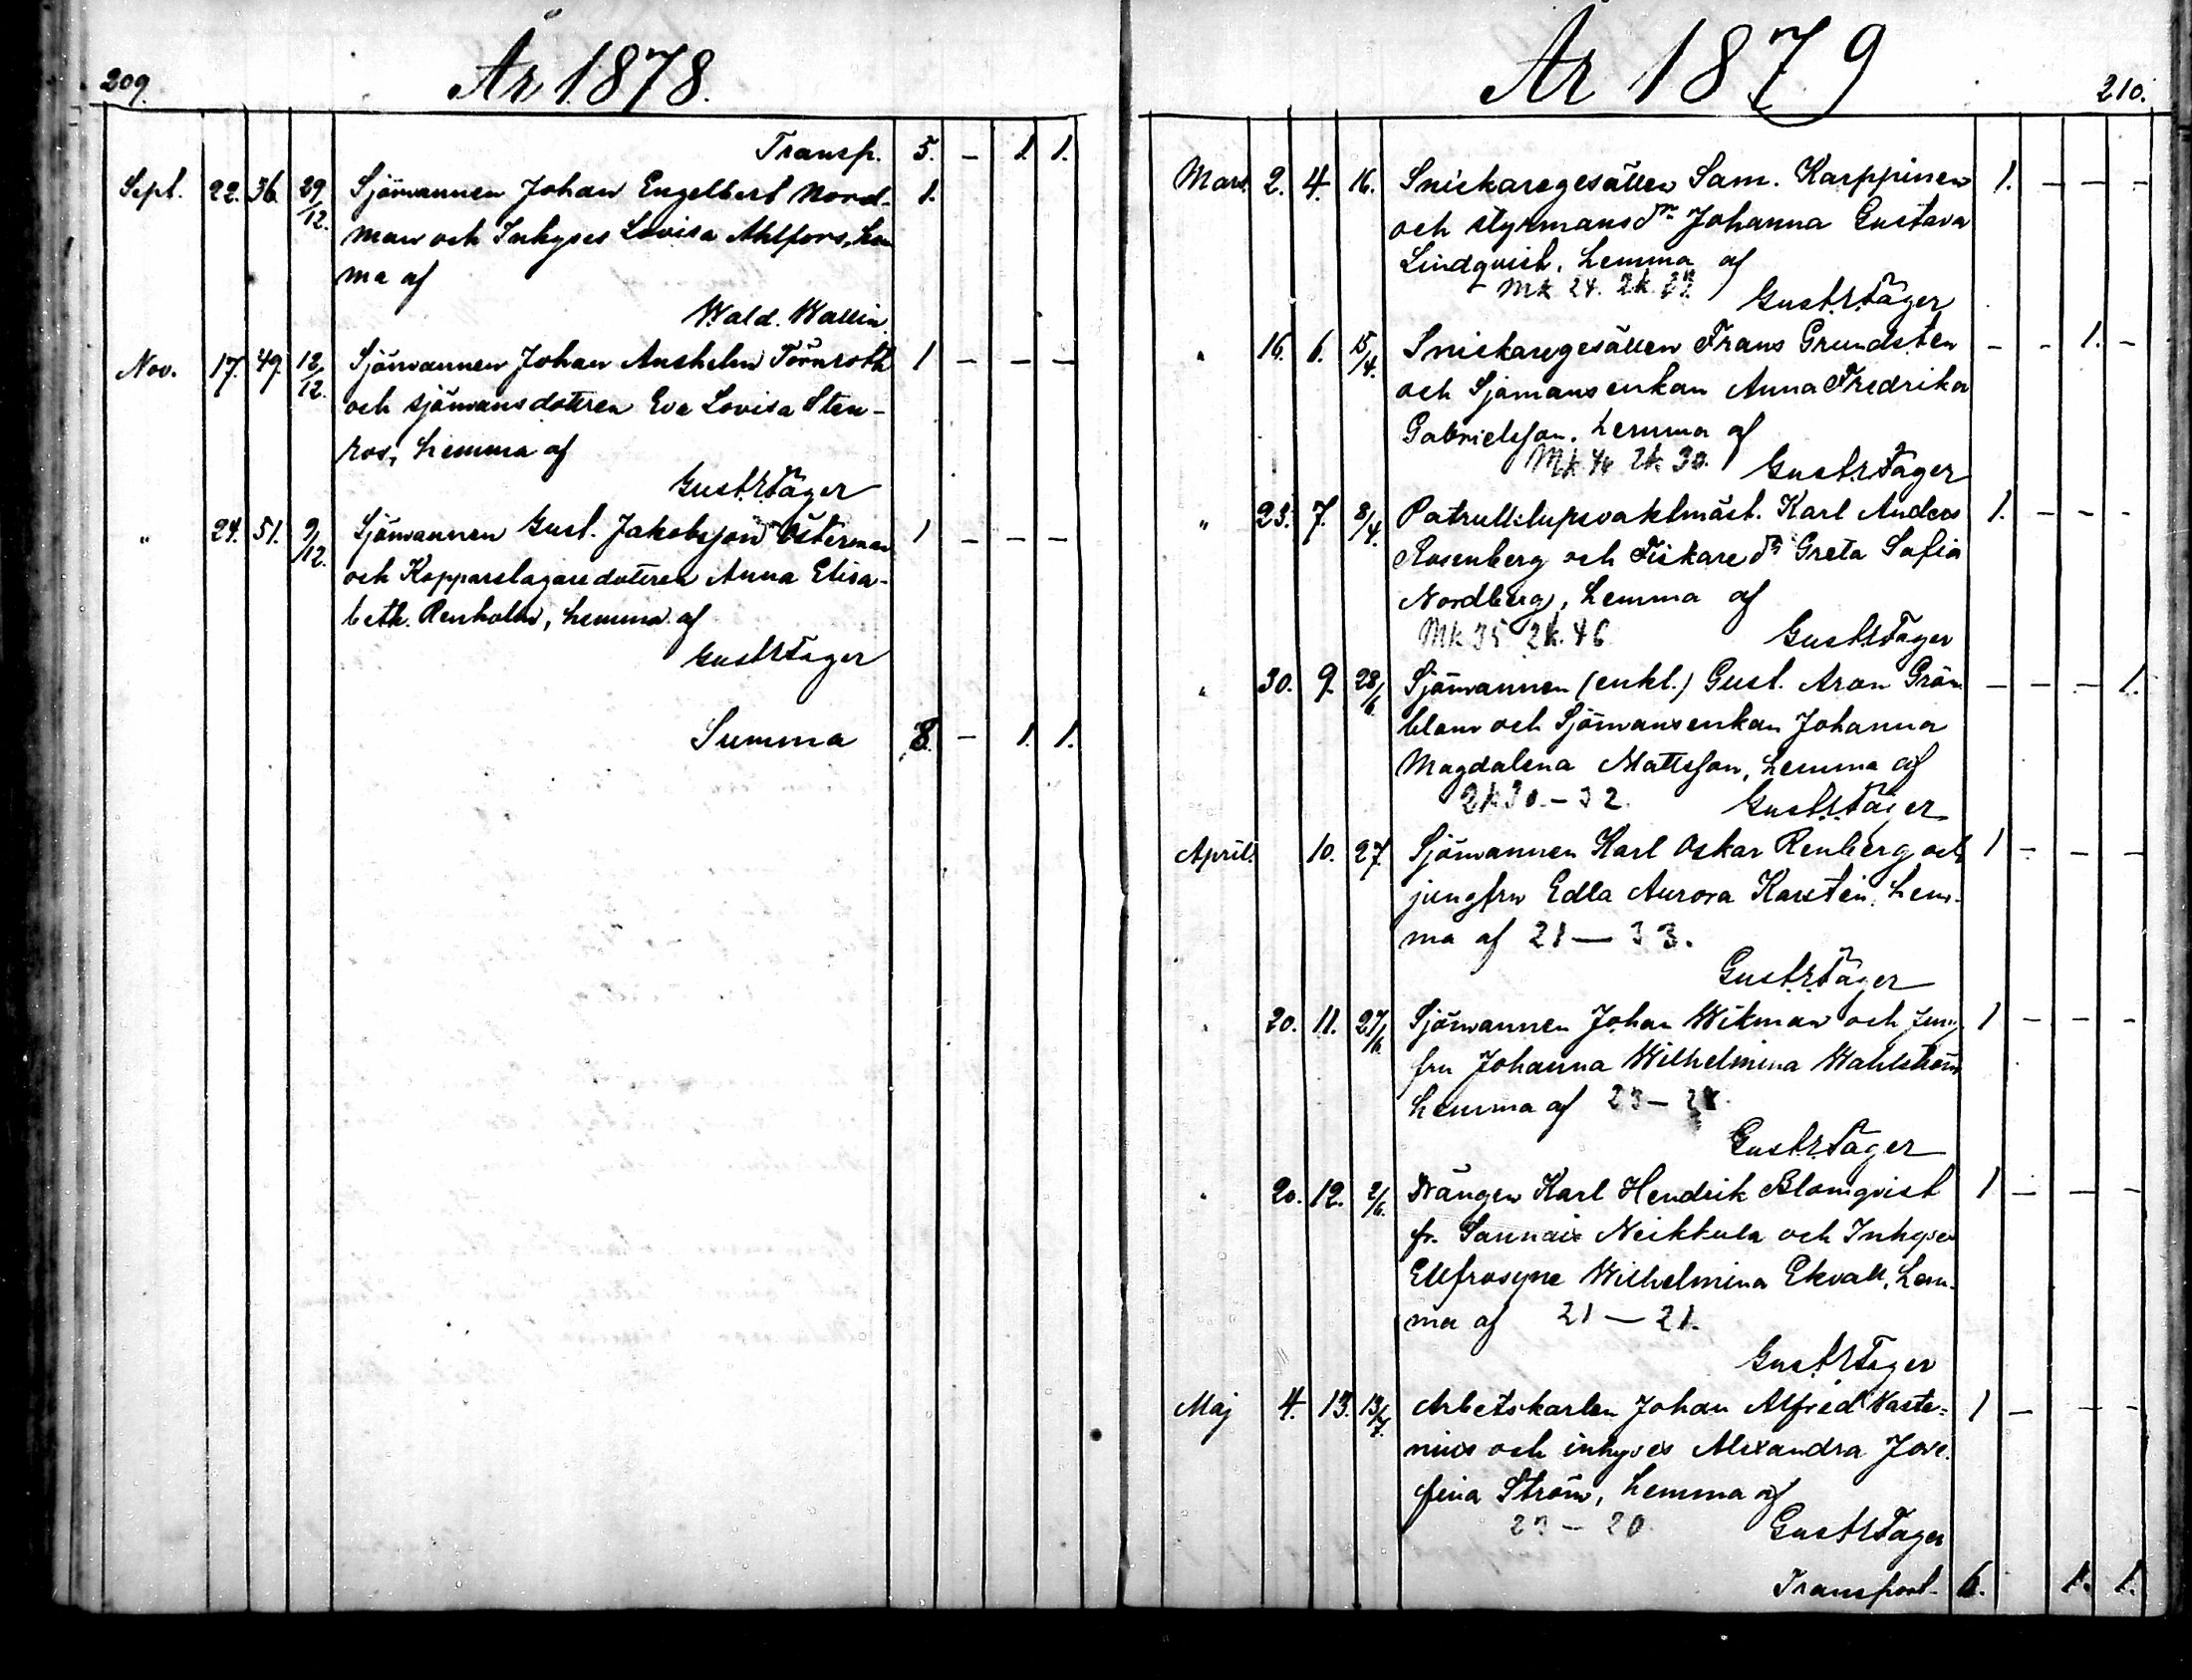 209.
År 1878.
Transp. 5. — 1. 1.
Sept. 22. 36. 29/12. Sjömannen Johan Engelbert Nord- 1.
man och Inhyses Lovisa Ahlfors, hem
ma af
Wald. Wallin.
Nov. 17. 49. 12/12. Sjömannen Johan Anshelm Törnroth 1 — — —
och sjömansdottren Eva Lovisa Sten-
ros, hemma af
Gust. R. Täger
" 24. 51. 9/12. Sjömannen Gust. Jakobsson Österman 1 — — —
och Kopparslagaredottren Anna Elisa-
beth. Renholm, hemma af
Gust. R. Täger
Summa 8. — 1. 1.
År 1879
210.
Mars. 2. 4. 16. Snickaregesällen Sam. Karppinen 1. — — —
och styrmansdr Johanna Gustava
Lindqvist, hemma af
Mk 24. 2k.
Gust. R. Täger
" 16. 6. 15/4. Snickaregesällen Frans Grundsten — — 1. —
och Sjömansenkan Anna Fredrika
Gabrielsson, hemma af
Mk. 2k. 30.
Gust. R. Täger
" 23. 7. 8/4. Patrullslupsvaktmäst. Karl Anders 1. — — —
Rosenberg och Fiskaredr Greta Sofia
Nordberg, hemma af
Mk 35 2k. 46
Gust. R. Täger
" 30. 9. 28/6. Sjömannen (enkl.) Gust. Aron Grön — — — 1.
blom och Sjömansenkan Johanna
Magdalena Mattsson, hemma af
2k 30. — 32.
Gust. R. Täger
April. 10. 27. Sjömannen Karl Oskar Renberg och 1 — — —
jungfru Edla Aurora Karstén, hem-
ma af 21 — 33.
Gust. R. Täger
" 20. 11. 27/6. Sjömannen Johan Wikman och Jung 1 — — —
fru Johanna Wilhelmina Wahlström
hemma af 23 —
Gust. R. Täger
" 20. 12. 2/6. Drängen Karl Hendrik Blomqvist 1 — — —
fr. Sannais Neikkula och Inhyses
Elfrosyne Wilhelmina Ekvall, hem-
ma af 21 — 21.
Gust. R. Täger
Maj 4. 13. 13/7. Arbetskarlen Johan Alfred Waste- 1 — — —
nius och inhyses Alexandra Jose-
fina Ström, hemma af
23 — 20.
Gust. R. Täger
Transport 6. 1. 1.